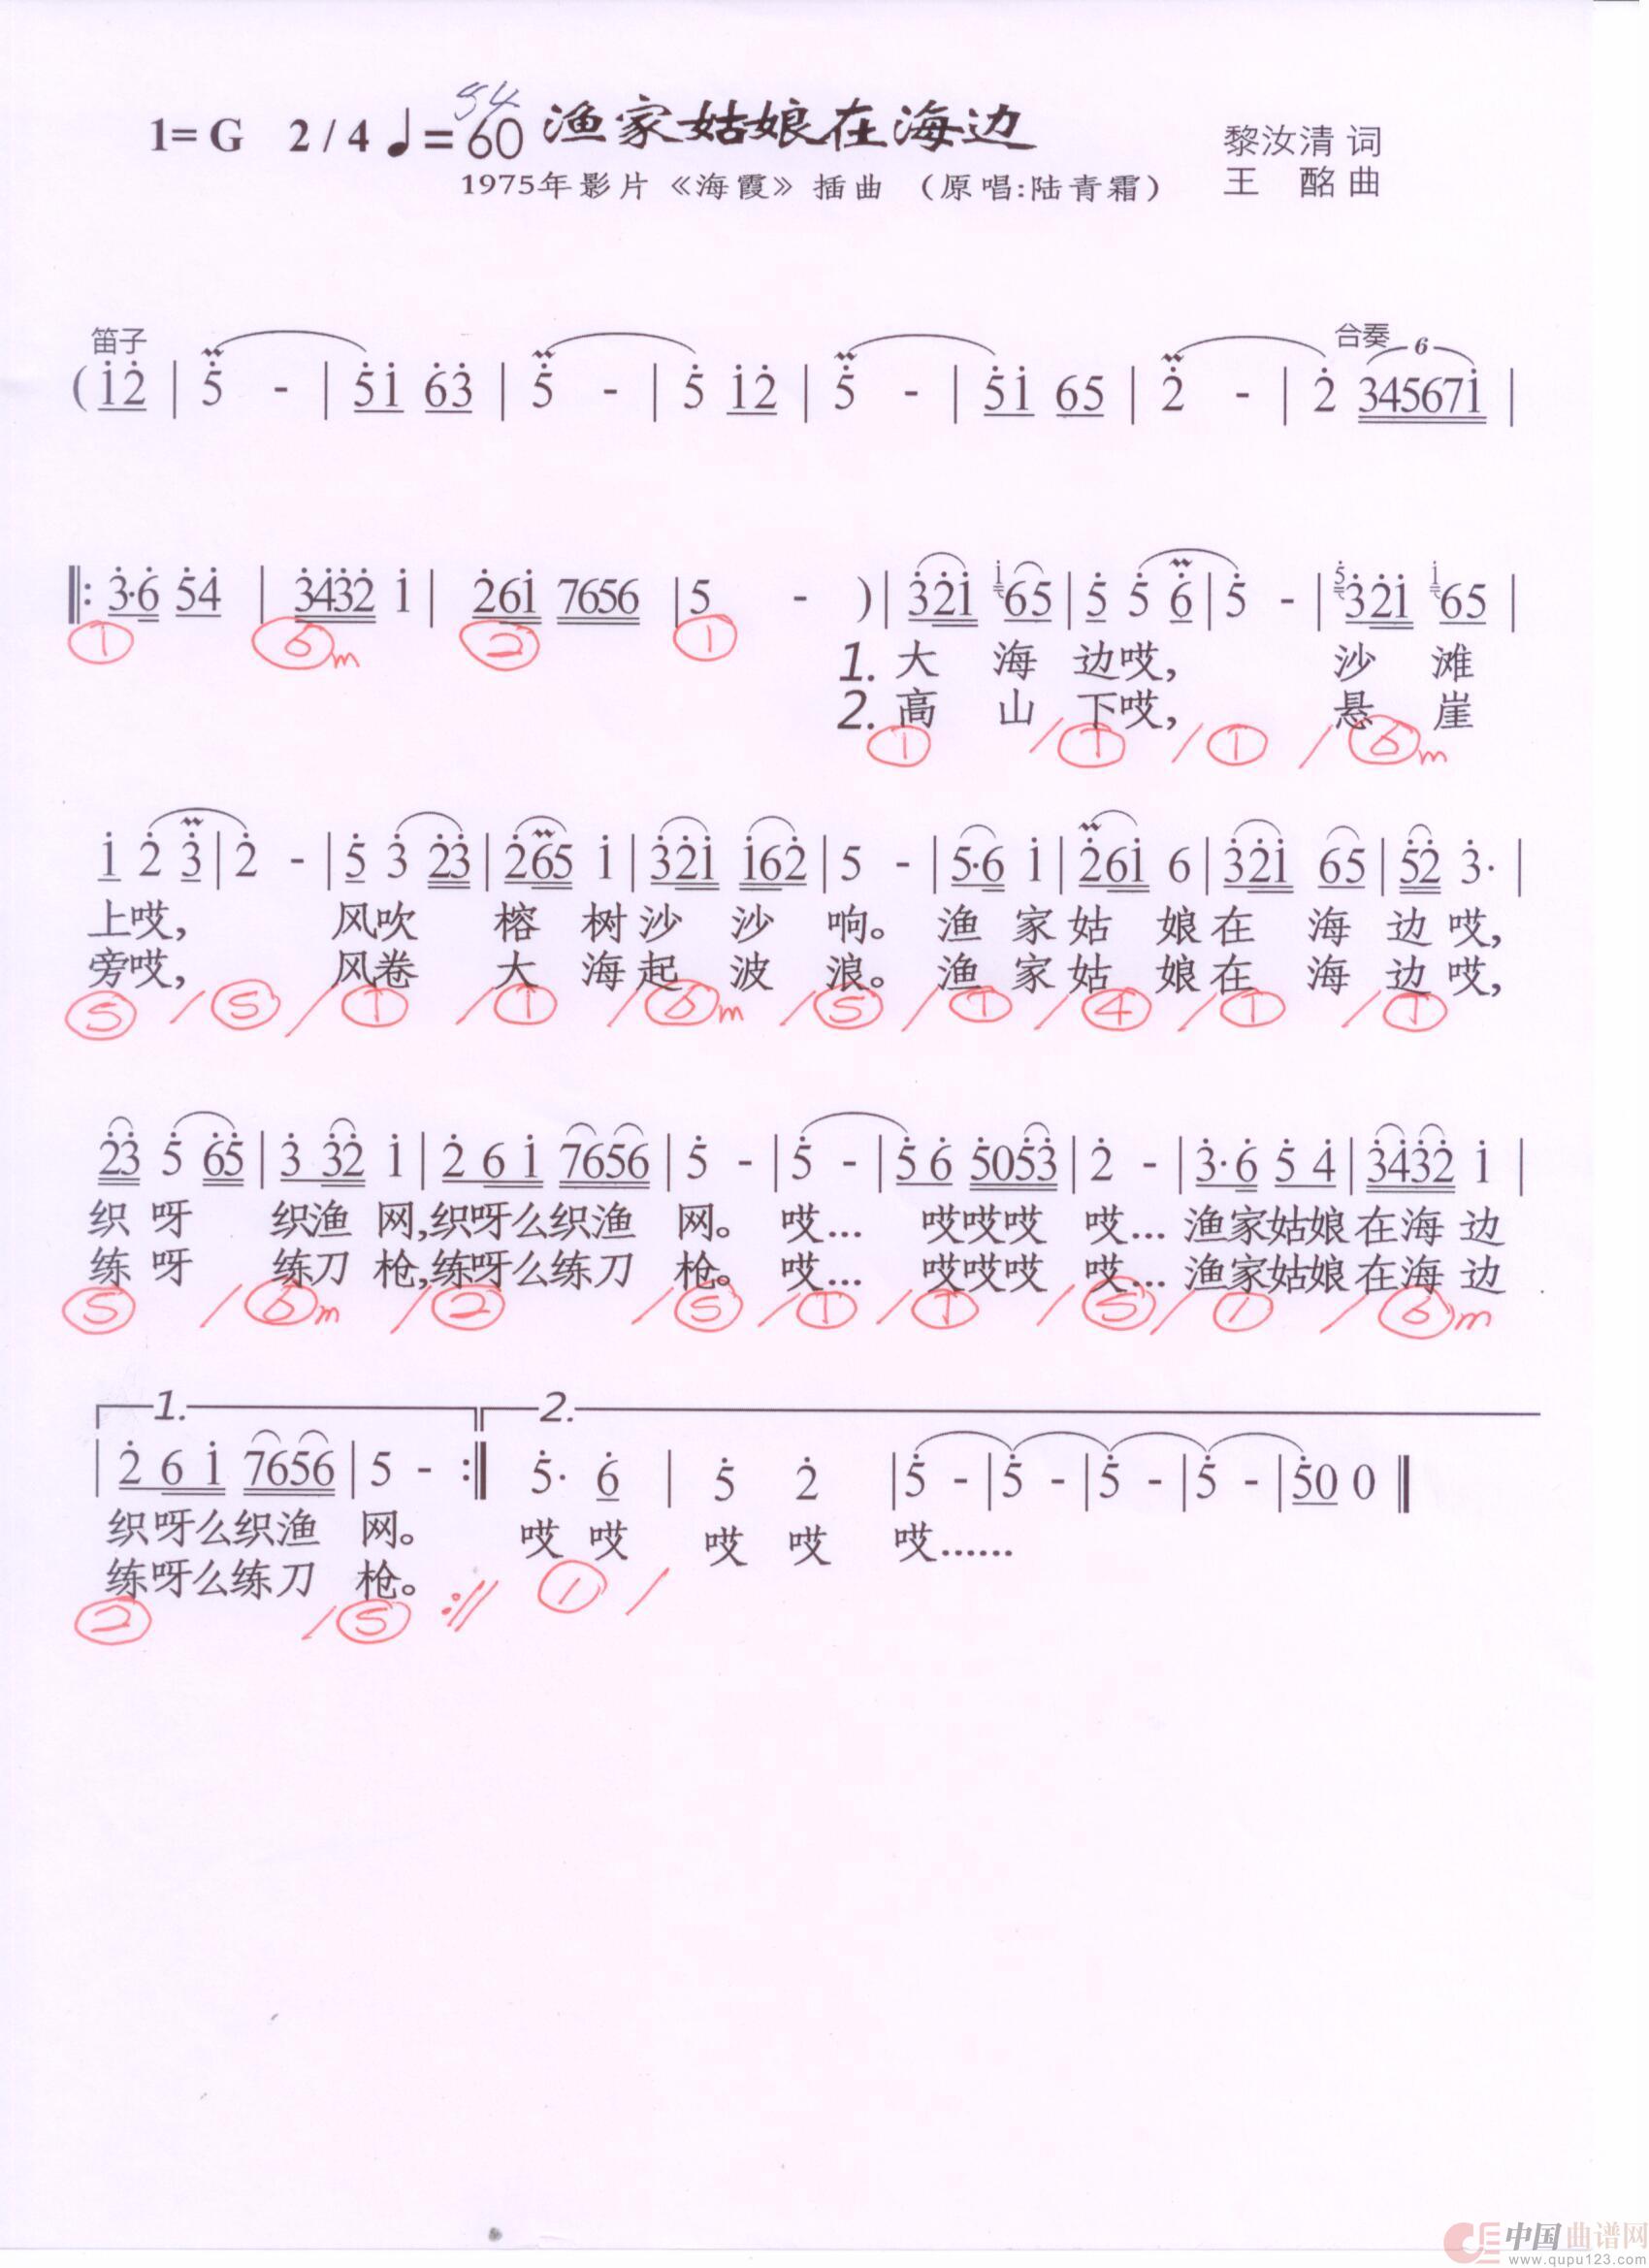 1= G 2 / 4 ♩= 60 54 渔家姑娘在海边 黎汝清 词
1975年影片《海霞》插曲 （原唱:陆青霜） 王 酩 曲
笛子 合奏
( i̇2̇ | 5̇ - | 5̇i̇ 6̇3̇ | 5̇ - | 5̇ i̇2̇ | 5̇ - | 5̇i̇ 65 | 2̇ - | 2̇ 6 34567i̇ |
‖: 3̇·6̇ 5̇4̇ | 3̇4̇3̇2̇ i̇ | 2̇6i̇ 7656 | 5 - ) | 3̇2̇i̇ i̇65 | 5̇ 5̇ 6̇ | 5̇ - | 5̇3̇2̇i̇ i̇65 |
1. 大 海 边哎, 沙 滩
2. 高 山 下哎, 悬 崖
① ⑥m ② ① ① / ① / ① / ⑥m
i̇ 2̇ 3̇ | 2̇ - | 5̇ 3̇ 2̇3̇ | 2̇65 i̇ | 3̇2̇i̇ i̇62̇ | 5 - | 5·6 i̇ | 2̇6i̇ 6 | 3̇2̇i̇ 65 | 5̇2̇ 3̇· |
上哎, 风吹 榕 树沙 沙 响。 渔 家姑 娘在 海 边哎,
旁哎, 风卷 大 海起 波 浪。 渔 家姑 娘在 海 边哎,
⑤ / ⑤ / ① / ① / ⑥m / ⑤ / ① / ④ / ① / ①
2̇3̇ 5̇ 6̇5̇ | 3̇ 3̇2̇ i̇ | 2̇ 6 i̇ 7656 | 5̇ - | 5̇ - | 5̇ 6̇ 5̇05̇3̇ | 2̇ - | 3̇·6̇ 5̇ 4̇ | 3̇4̇3̇2̇ i̇ |
织 呀 织渔 网,织呀么织渔 网。 哎... 哎哎哎 哎... 渔家姑娘在海 边
练 呀 练刀 枪,练呀么练刀 枪。 哎... 哎哎哎 哎... 渔家姑娘在海 边
⑤ / ⑥m / ② / ⑤ / ① / ① / ⑤ / ① / ⑥m
1. 2.
| 2̇ 6 i̇ 7656 | 5 - :‖ 5̇· 6̇ | 5̇ 2̇ | 5̇ - | 5̇ - | 5̇ - | 5̇ - | 5̇0 0 ‖
织呀么织渔 网。 哎 哎 哎 哎 哎......
练呀么练刀 枪。
② / ⑤ :// ① /
中国曲谱网
www.qupu123.com